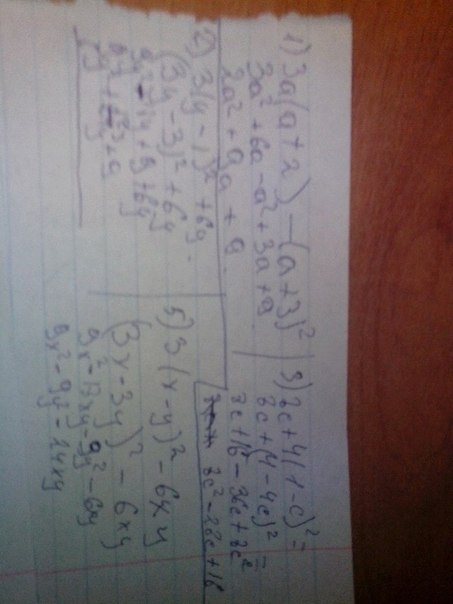 1) 3a(a+2) - (a+3)²
3a² + 6a - a² + 3a + 9
2a² + 9a + 9
2) 3(y-1)² + 6y
(3y-3)² + 6y
3) 8c + 4(1-c)² =
8c + (4-4c)² =
8c + 16 - 36c + 8c²
8c² - 28c + 16
5) 3(x-y)² - 6xy
(3x-3y)² - 6xy
9x² - 18xy - 9y² - 6xy
9x² - 9y² - 24xy